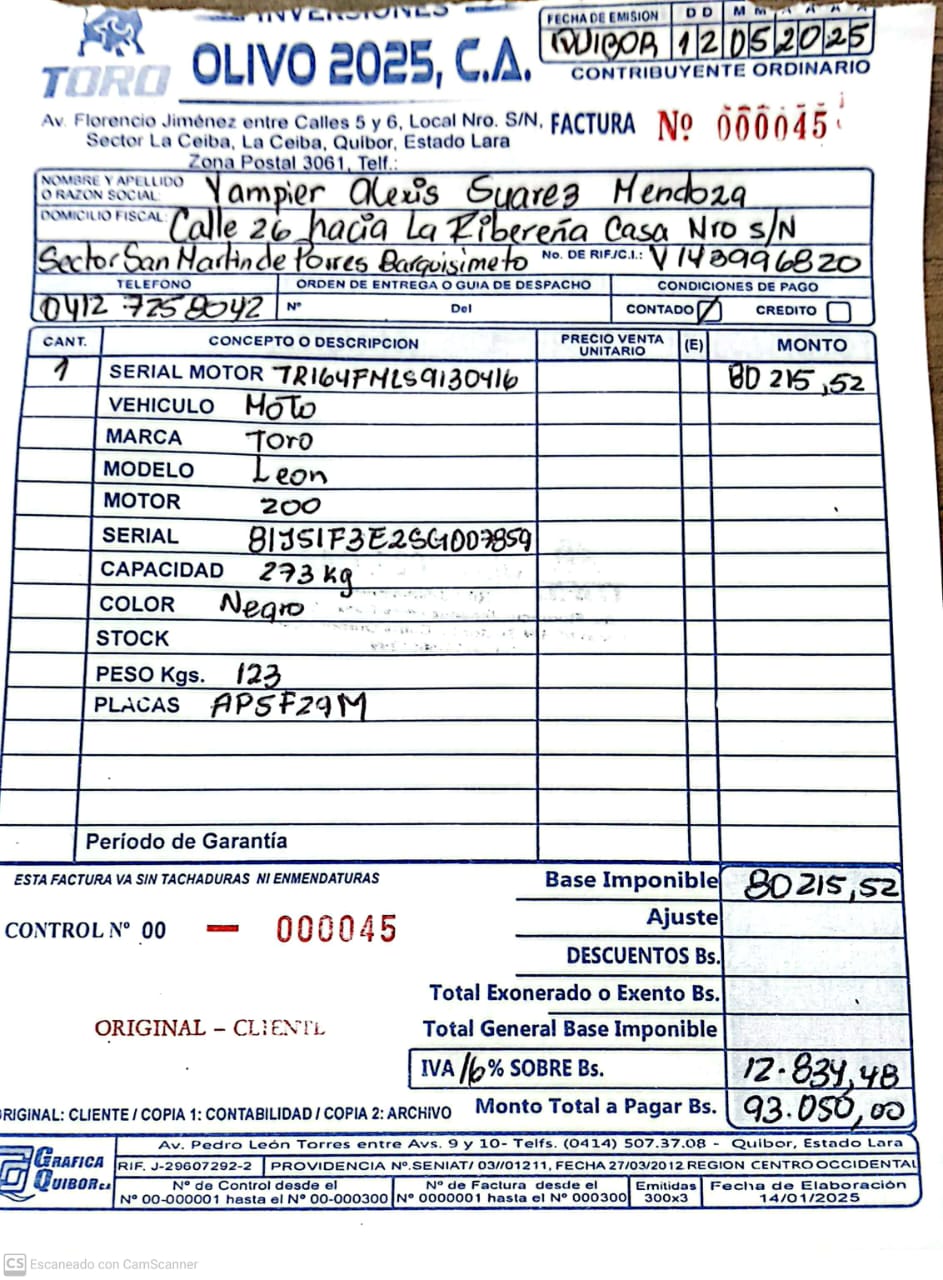 INVERSIONES
TORO
OLIVO 2025, C.A.
FECHA DE EMISION D D M M A A A A
QUIBOR 12 05 2025
CONTRIBUYENTE ORDINARIO
Av. Florencio Jiménez entre Calles 5 y 6, Local Nro. S/N,
Sector La Ceiba, La Ceiba, Quibor, Estado Lara
Zona Postal 3061, Telf.:
FACTURA Nº 000045
NOMBRE Y APELLIDO O RAZON SOCIAL: Yampier Alexis Suarez Mendoza
DOMICILIO FISCAL: Calle 26 hacia La Ribereña Casa Nro S/N
Sector San Martin de Porres Barquisimeto No. DE RIF./C.I.: V143996820
TELEFONO ORDEN DE ENTREGA O GUIA DE DESPACHO CONDICIONES DE PAGO
0412 7258042 Nº Del CONTADO CREDITO
CANT. CONCEPTO O DESCRIPCION PRECIO VENTA UNITARIO (E) MONTO
1 SERIAL MOTOR TR164FMLS9130416 80 215,52
VEHICULO Moto
MARCA Toro
MODELO Leon
MOTOR 200
SERIAL 81JS1F3E2SG007859
CAPACIDAD 273 kg
COLOR Negro
STOCK
PESO Kgs. 123
PLACAS AP5F29M
Período de Garantía
ESTA FACTURA VA SIN TACHADURAS NI ENMENDATURAS
Base Imponible 80 215,52
Ajuste
CONTROL Nº 00 — 000045
DESCUENTOS Bs.
Total Exonerado o Exento Bs.
ORIGINAL – CLIENTE
Total General Base Imponible
IVA 16 % SOBRE Bs. 12.834,48
ORIGINAL: CLIENTE / COPIA 1: CONTABILIDAD / COPIA 2: ARCHIVO
Monto Total a Pagar Bs. 93.050,00
GRAFICA QUIBOR C.A.
Av. Pedro León Torres entre Avs. 9 y 10- Telfs. (0414) 507.37.08 - Quibor, Estado Lara
RIF. J-29607292-2 PROVIDENCIA Nº.SENIAT/ 03//01211, FECHA 27/03/2012 REGION CENTRO OCCIDENTAL
Nº de Control desde el Nº 00-000001 hasta el Nº 00-000300
Nº de Factura desde el Nº 0000001 hasta el Nº 000300
Emitidas 300x3
Fecha de Elaboración 14/01/2025
CS Escaneado con CamScanner